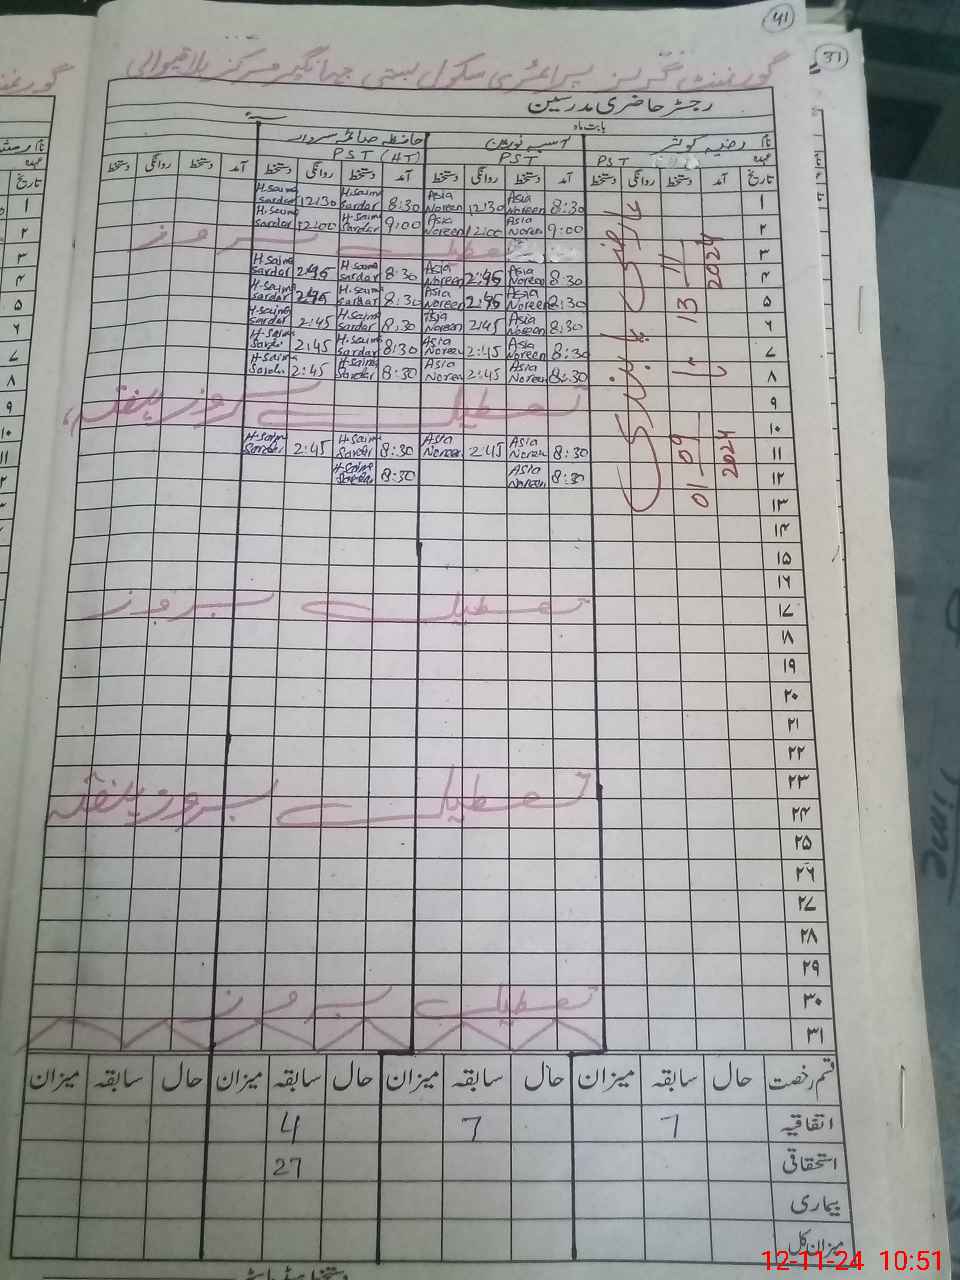 41
گورنمنٹ گرلز پرائمری سکول بستی جہانگیر مرکز
31
رجسٹر حاضری مدرسین
بابت ماہ
نام رضیہ کوثر آسیہ نورین حافظہ صائمہ سردار
عہدہ PST PST PST (HT)
تاریخ آمد دستخط روانگی دستخط آمد دستخط روانگی دستخط آمد دستخط روانگی دستخط آمد دستخط روانگی دستخط
۱ 8:30 Asia Noreen 12:30 Asia Noreen 8:30 H.Saima Sardar 12:30 H.Saima Sardar
۲ 9:00 Asia Noreen 12:00 Asia Noreen 9:00 H.Saima Sardar 12:00 H.Saima Sardar
۳ تعطیل بروز
۴ 8:30 Asia Noreen 2:45 Asia Noreen 8:30 H.Saima Sardar 2:45 H.Saima Sardar
۵ 8:30 Asia Noreen 2:45 Asia Noreen 8:30 H.Saima Sardar 2:45 H.Saima Sardar
۶ 8:30 Asia Noreen 2:45 Asia Noreen 8:30 H.Saima Sardar 2:45 H.Saima Sardar
۷ 8:30 Asia Noreen 2:45 Asia Noreen 8:30 H.Saima Sardar 2:45 H.Saima Sardar
۸ 8:30 Asia Noreen 2:45 Asia Noreen 8:30 H.Saima Sardar 2:45 H.Saima Sardar
۹ تعطیل بروز ہفتہ
۱۰
۱۱ 8:30 Asia Noreen 2:45 Asia Noreen 8:30 H.Saima Sardar 2:45 H.Saima Sardar
۱۲ 8:30 Asia Noreen 8:30 H.Saima Sardar
عارضی پابندی
01-09-2024 تا 13-11-2024
۱۳
۱۴
۱۵
۱۶
۱۷ تعطیل بروز
۱۸
۱۹
۲۰
۲۱
۲۲
۲۳ تعطیل بروز ہفتہ
۲۴
۲۵
۲۶
۲۷
۲۸
۲۹
۳۰ تعطیل بروز
۳۱
قسم رخصت حال سابقہ میزان حال سابقہ میزان حال سابقہ میزان حال سابقہ میزان
اتفاقیہ 7 7 4
استحقاقی 27
بیماری
میزان کل
12-11-24 10:51